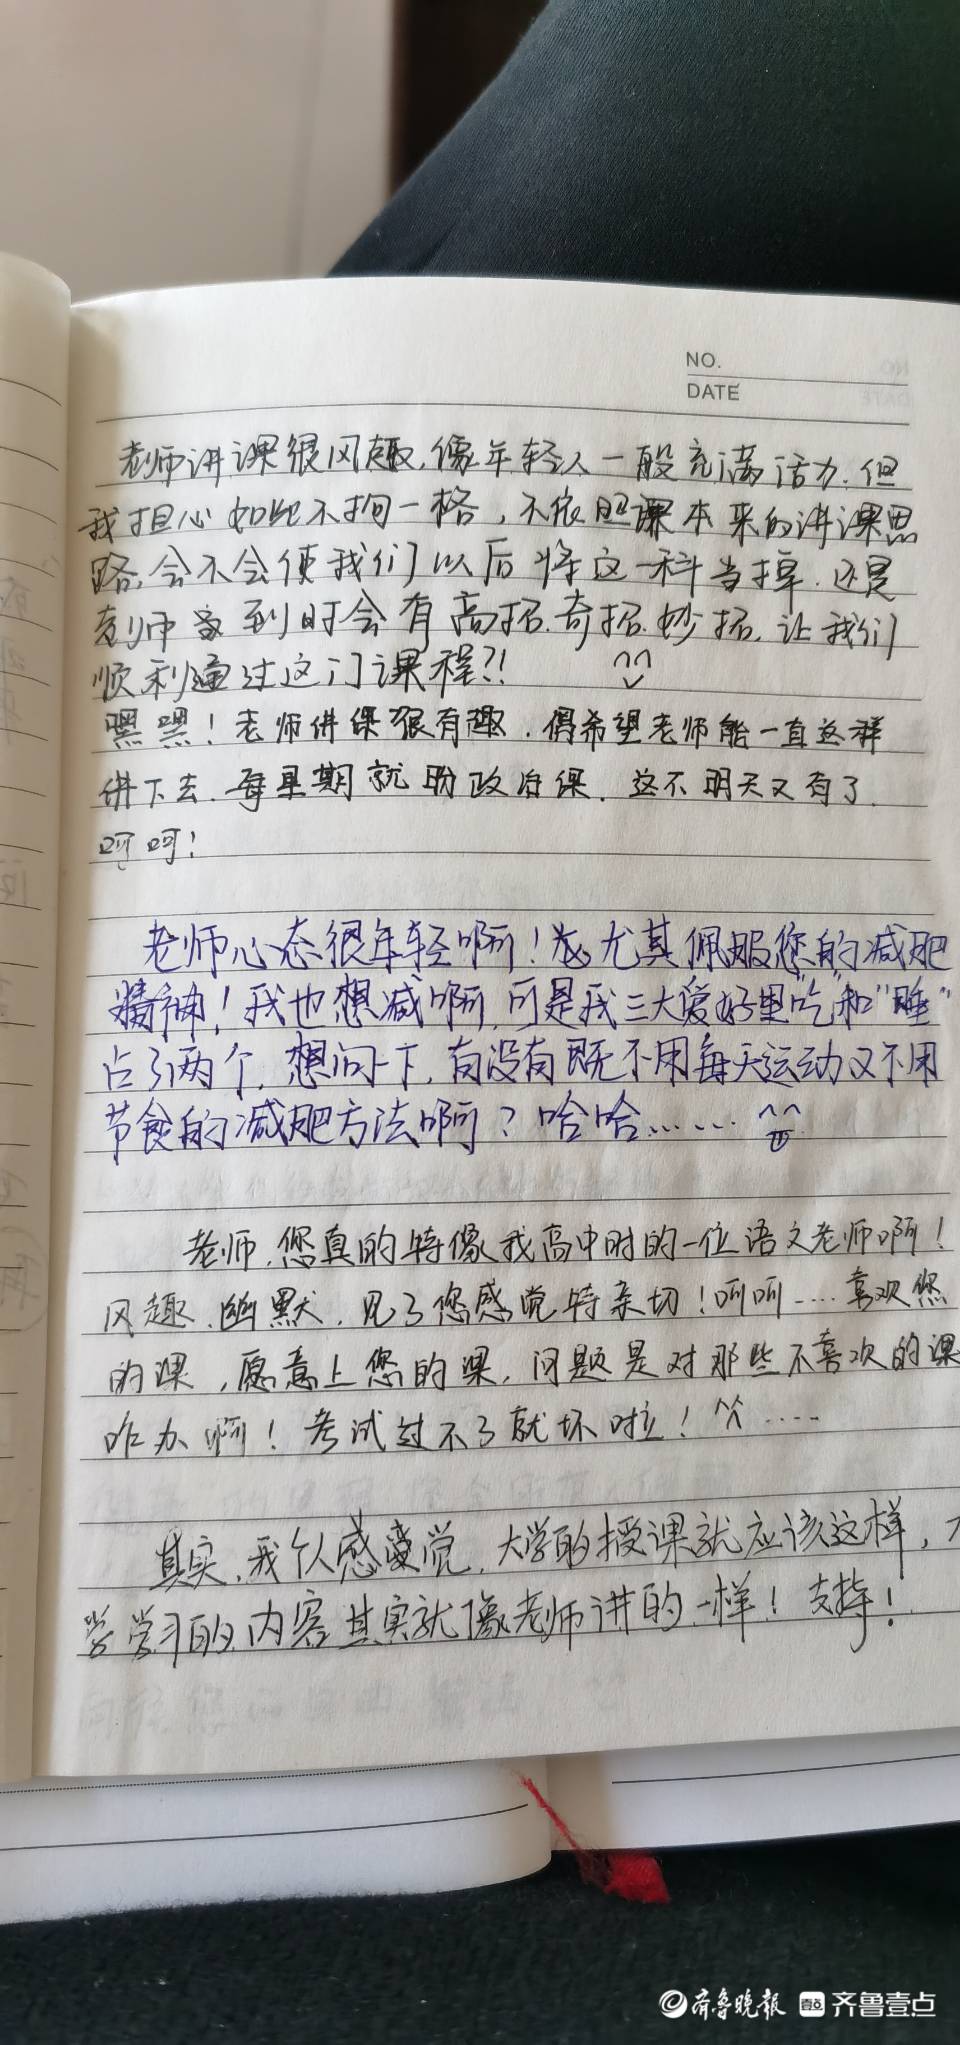 NO.
DATE
老师讲课很风趣，像年轻人一般充满活力.但
我担心如此不拘一格，不依照课本来的讲课思
路，会不会使我们以后将这一科当掉.还是
老师家到时会有高招.奇招.妙招.让我们
顺利通过这门课程?!
嘿嘿！老师讲课很有趣.偶希望老师能一直这样
讲下去.每星期就盼政治课.这不明天又有了.
呵呵！
老师心态很年轻啊！尤其佩服您的减肥
精神！我也想减啊，可是我三大爱好里"吃"和"睡"
占了两个.想问一下，有没有既不用每天运动又不用
节食的减肥方法啊？哈哈……
老师，您真的特像我高中时的一位语文老师啊！
风趣.幽默，见了您感觉特亲切！呵呵……喜欢您
的课，愿意上您的课，问题是对那些不喜欢的课
咋办啊！考试过不了就坏啦！^^……
其实，我个人感觉，大学的授课就应该这样，
学习的内容其实就像老师讲的一样！支持！
齐鲁晚报 齐鲁壹点